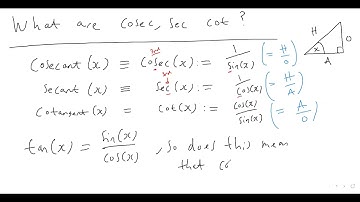 What are cosec, sec cot?
H O x A
3rd
Cosecant (x) ≡ Cosec(x) := 1/sin(x) (= H/O)
3rd
Secant (x) ≡ Sec(x) := 1/cos(x) (= H/A)
3rd
Cotangent (x) = cot(x) := cos(x)/sin(x) (= A/O)
tan(x) = sin(x)/cos(x), so does this mean
that co